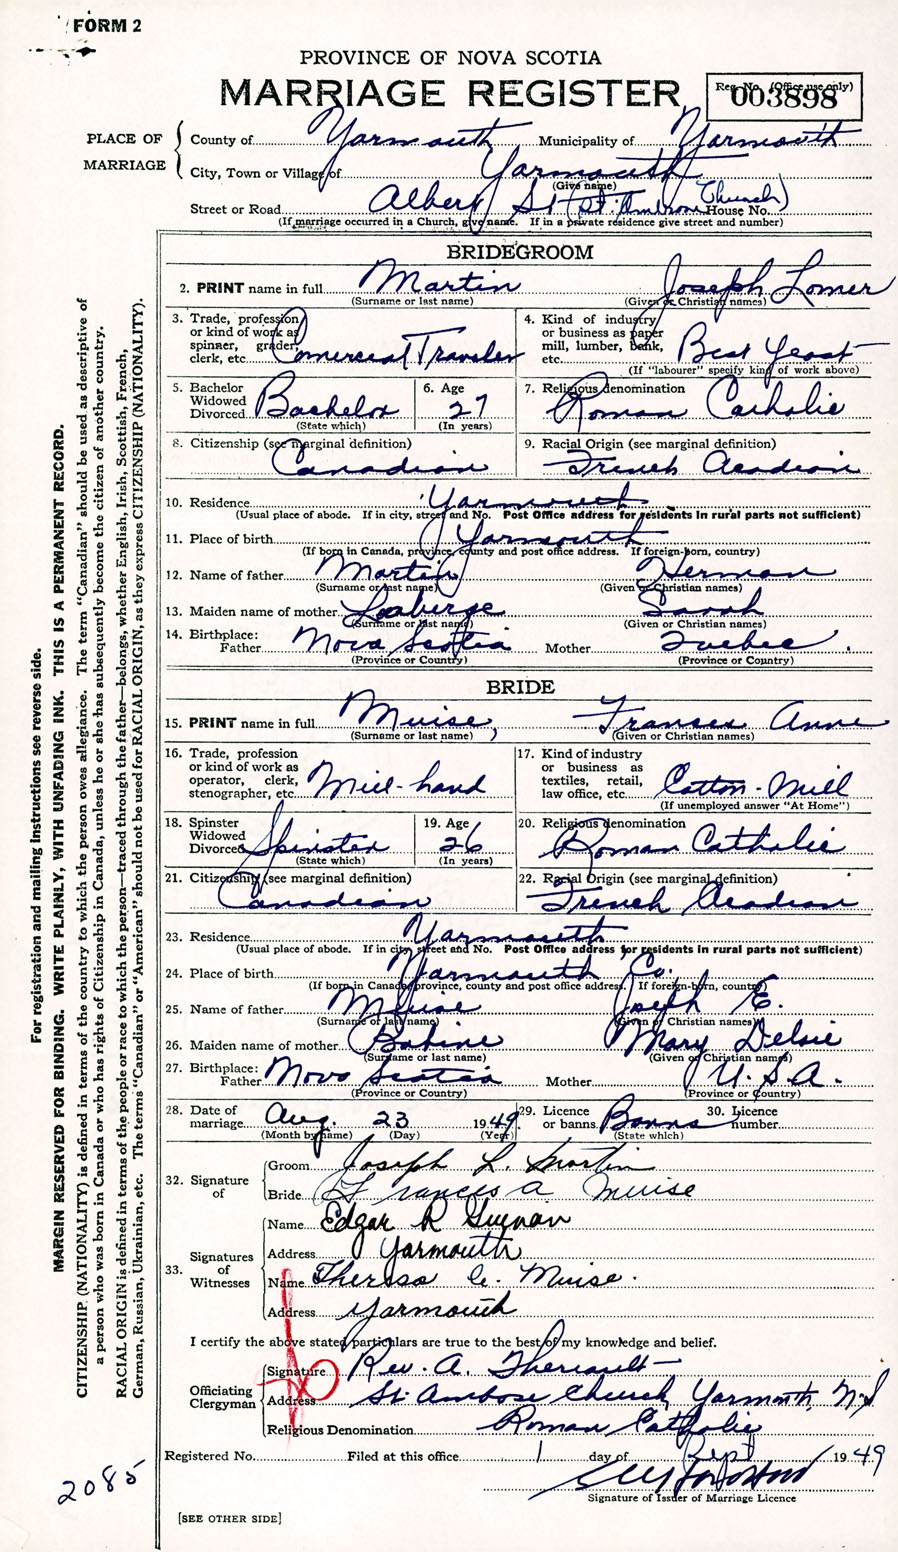 FORM 2
PROVINCE OF NOVA SCOTIA
MARRIAGE REGISTER
Reg. No. (Office use only)
003898
PLACE OF MARRIAGE
County of Yarmouth Municipality of Yarmouth
City, Town or Village of Yarmouth
(Give name)
Street or Road Albert St (St. Ambrose Church) House No.
(If marriage occurred in a Church, give name. If in a private residence give street and number)
BRIDEGROOM
2. PRINT name in full Martin Joseph Lomer
(Surname or last name) (Given or Christian names)
3. Trade, profession or kind of work as spinner, grader, clerk, etc. Comercial Traveler
4. Kind of industry or business as paper mill, lumber, bank, etc. Best Yeast
(If "labourer" specify kind of work above)
5. Bachelor Widowed Divorced Bachelor
(State which)
6. Age 27
(In years)
7. Religious denomination Roman Catholic
8. Citizenship (see marginal definition) Canadian
9. Racial Origin (see marginal definition) French Acadian
10. Residence Yarmouth
(Usual place of abode. If in city, street and No. Post Office address for residents in rural parts not sufficient)
11. Place of birth Yarmouth
(If born in Canada, province, county and post office address. If foreign-born, country)
12. Name of father Martin Herman
(Surname or last name) (Given or Christian names)
13. Maiden name of mother Leaberge Sarah
(Surname or last name) (Given or Christian names)
14. Birthplace: Father Nova Scotia Mother Quebec
(Province or Country) (Province or Country)
BRIDE
15. PRINT name in full Muise, Frances Anne
(Surname or last name) (Given or Christian names)
16. Trade, profession or kind of work as operator, clerk, stenographer, etc. Mill-hand
17. Kind of industry or business as textiles, retail, law office, etc. Cotton-Mill
(If unemployed answer "At Home")
18. Spinster Widowed Divorced Spinster
(State which)
19. Age 26
(In years)
20. Religious denomination Roman Catholic
21. Citizenship (see marginal definition) Canadian
22. Racial Origin (see marginal definition) French Acadian
23. Residence Yarmouth
(Usual place of abode. If in city, street and No. Post Office address for residents in rural parts not sufficient)
24. Place of birth Yarmouth Co.
(If born in Canada, province, county and post office address. If foreign-born, country)
25. Name of father Muise Joseph E.
(Surname or last name) (Given or Christian names)
26. Maiden name of mother Babine Mary Delsie
(Surname or last name) (Given or Christian names)
27. Birthplace: Father Nova Scotia Mother U.S.A.
(Province or Country) (Province or Country)
28. Date of marriage Aug. 23 1949
(Month by name) (Day) (Year)
29. Licence or banns Banns
(State which)
30. Licence number
32. Signature of
Groom Joseph L. Martin
Bride Frances A Muise
33. Signatures of Witnesses
Name Edgar R Surnan
Address Yarmouth
Name Theresa C. Muise.
Address Yarmouth
I certify the above stated particulars are true to the best of my knowledge and belief.
Officiating Clergyman
Signature Rev. A. Theriault
Address St. Ambose Church, Yarmouth, N.S
Religious Denomination Roman Catholic
Registered No. Filed at this office 1 day of Sept 1949
Signature of Issuer of Marriage Licence
[SEE OTHER SIDE]
2085
For registration and mailing instructions see reverse side.
MARGIN RESERVED FOR BINDING. WRITE PLAINLY, WITH UNFADING INK. THIS IS A PERMANENT RECORD.
CITIZENSHIP (NATIONALITY) is defined in terms of the country to which the person owes allegiance. The term "Canadian" should be used as descriptive of
a person who was born in Canada or who has rights of Citizenship in Canada, unless he or she has subsequently become the citizen of another country.
RACIAL ORIGIN is defined in terms of the people or race to which the person—traced through the father—belongs, whether English, Irish, Scottish, French,
German, Russian, Ukrainian, etc. The terms "Canadian" or "American" should not be used for RACIAL ORIGIN, as they express CITIZENSHIP (NATIONALITY).